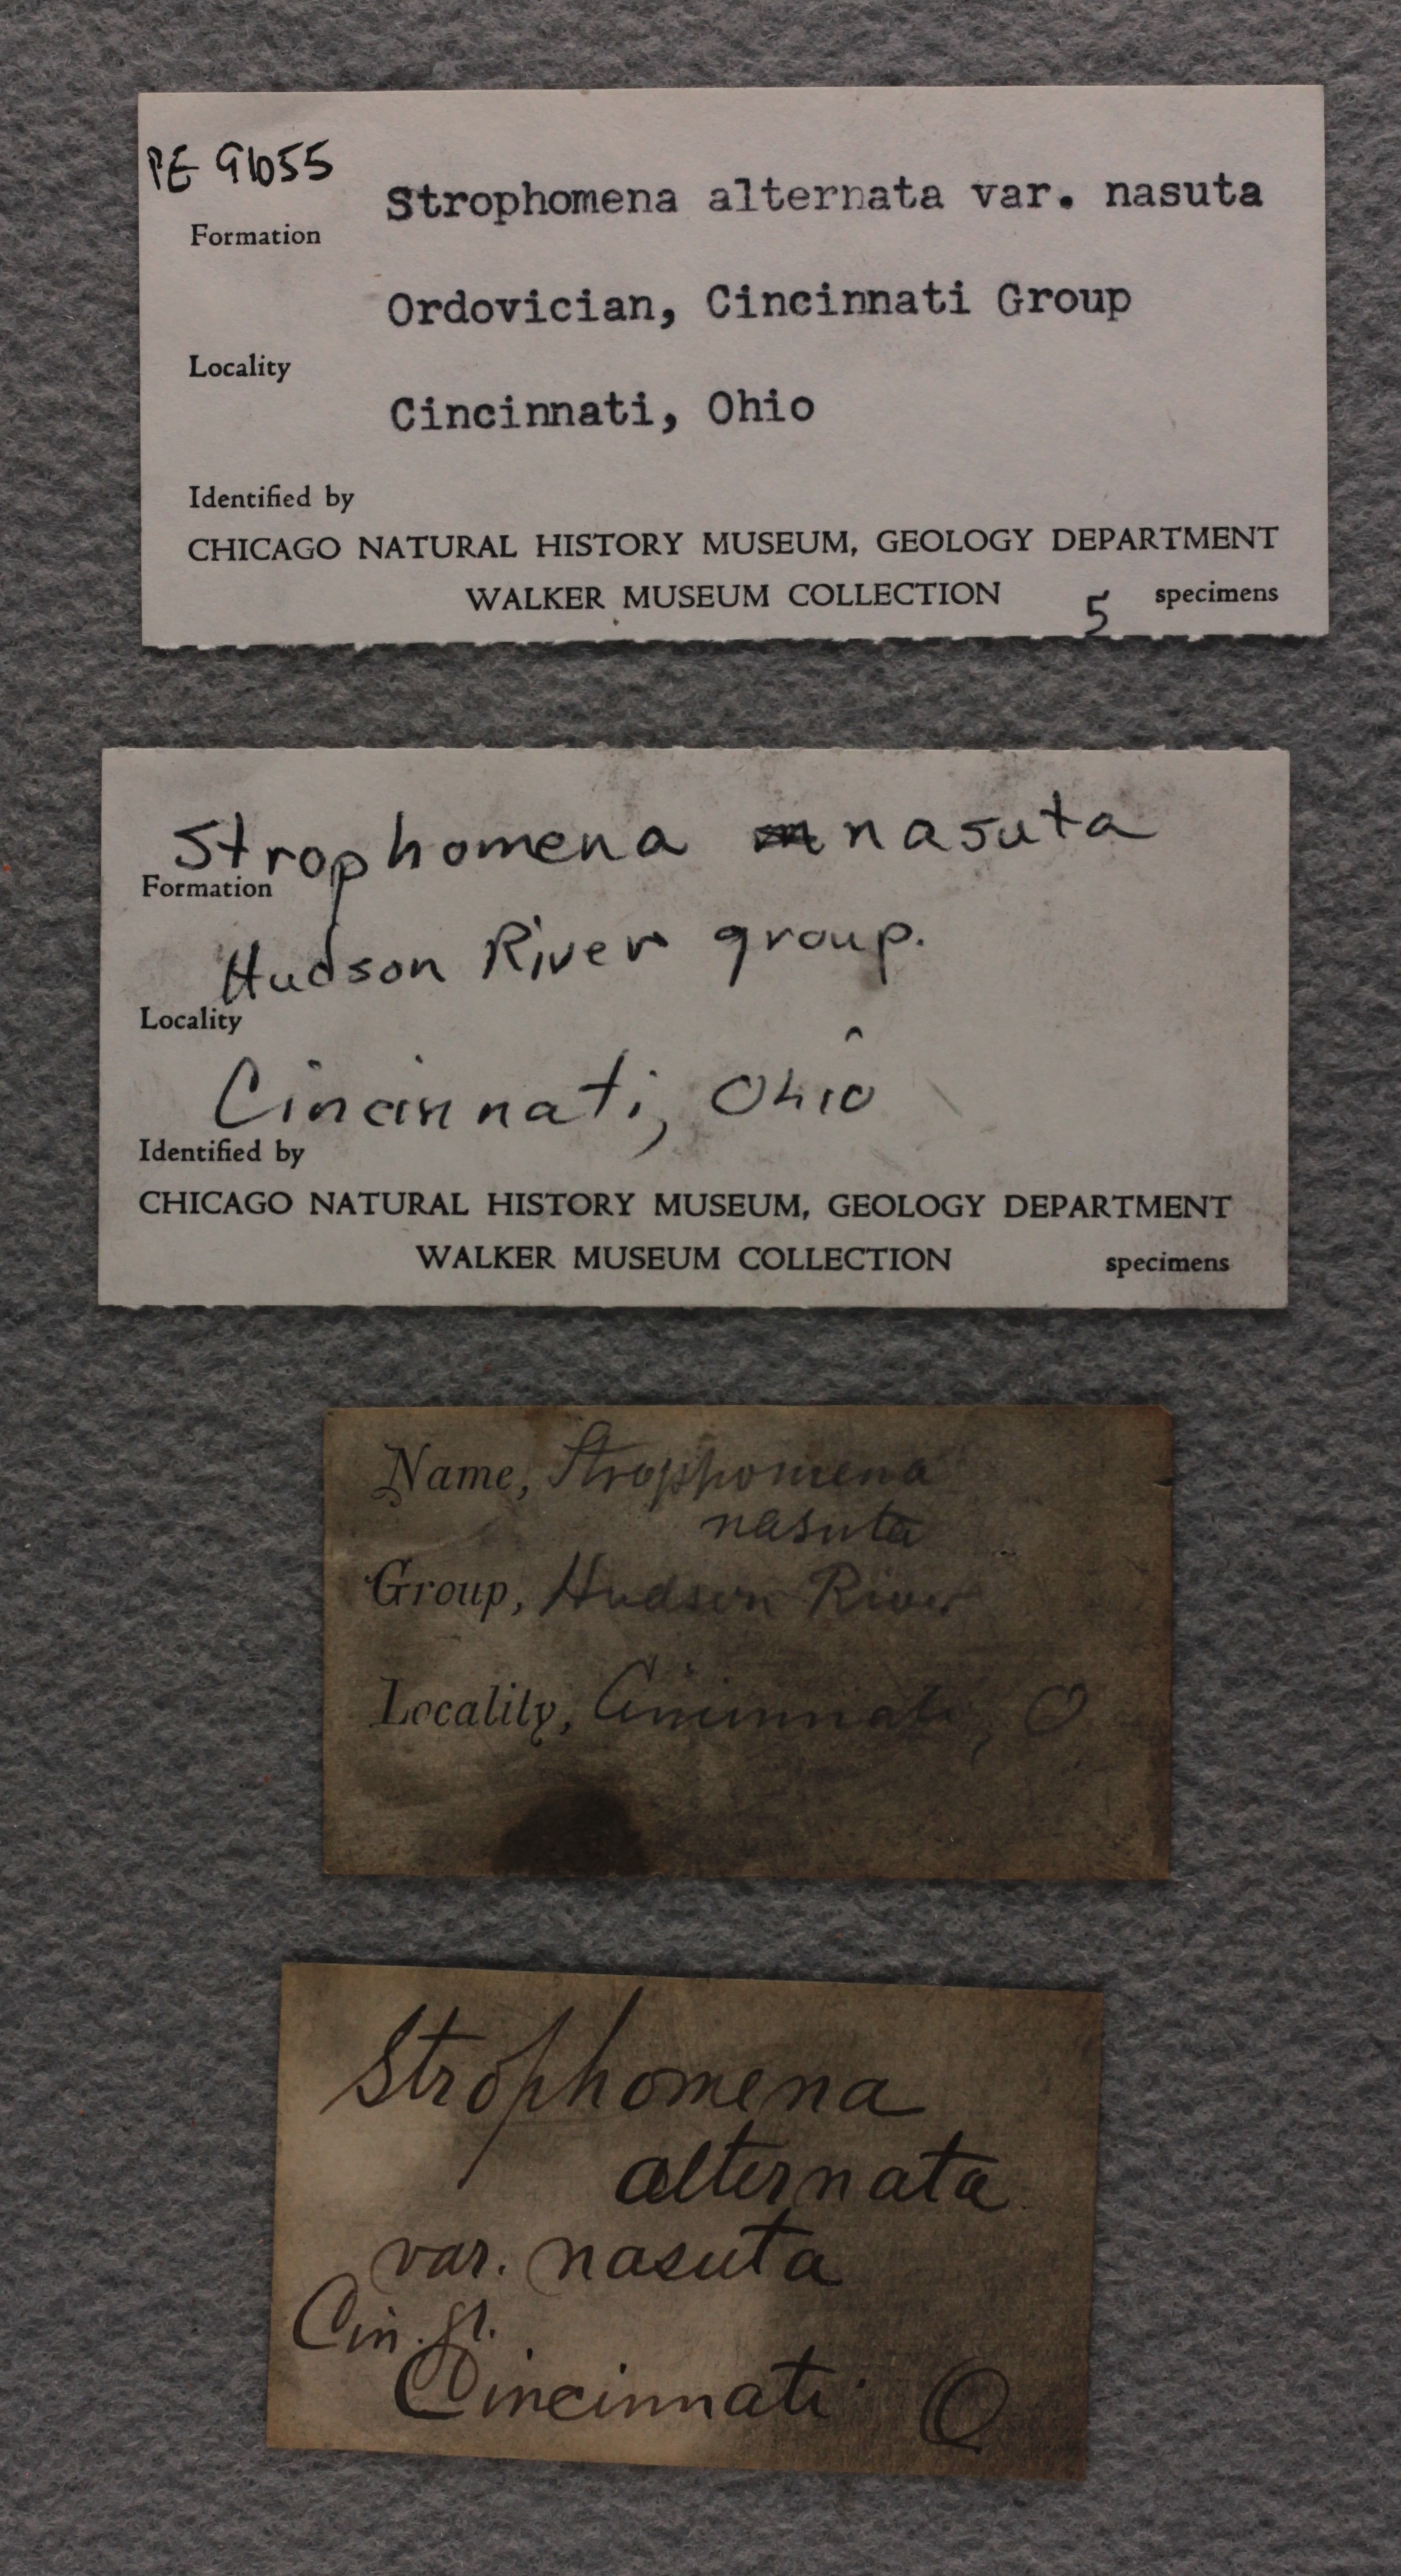 PE 91055
Strophomena alternata var. nasuta
Formation
Ordovician, Cincinnati Group
Locality
Cincinnati, Ohio
Identified by
CHICAGO NATURAL HISTORY MUSEUM, GEOLOGY DEPARTMENT
WALKER MUSEUM COLLECTION 5 specimens
Strophomena nasuta
Formation
Hudson River group.
Locality
Cincinnati, Ohio
Identified by
CHICAGO NATURAL HISTORY MUSEUM, GEOLOGY DEPARTMENT
WALKER MUSEUM COLLECTION specimens
Name, Strophomena
nasuta
Group, Hudson River
Locality, Cincinnati, O
Strophomena
alternata
var. nasuta
Cin. gr.
Cincinnati O